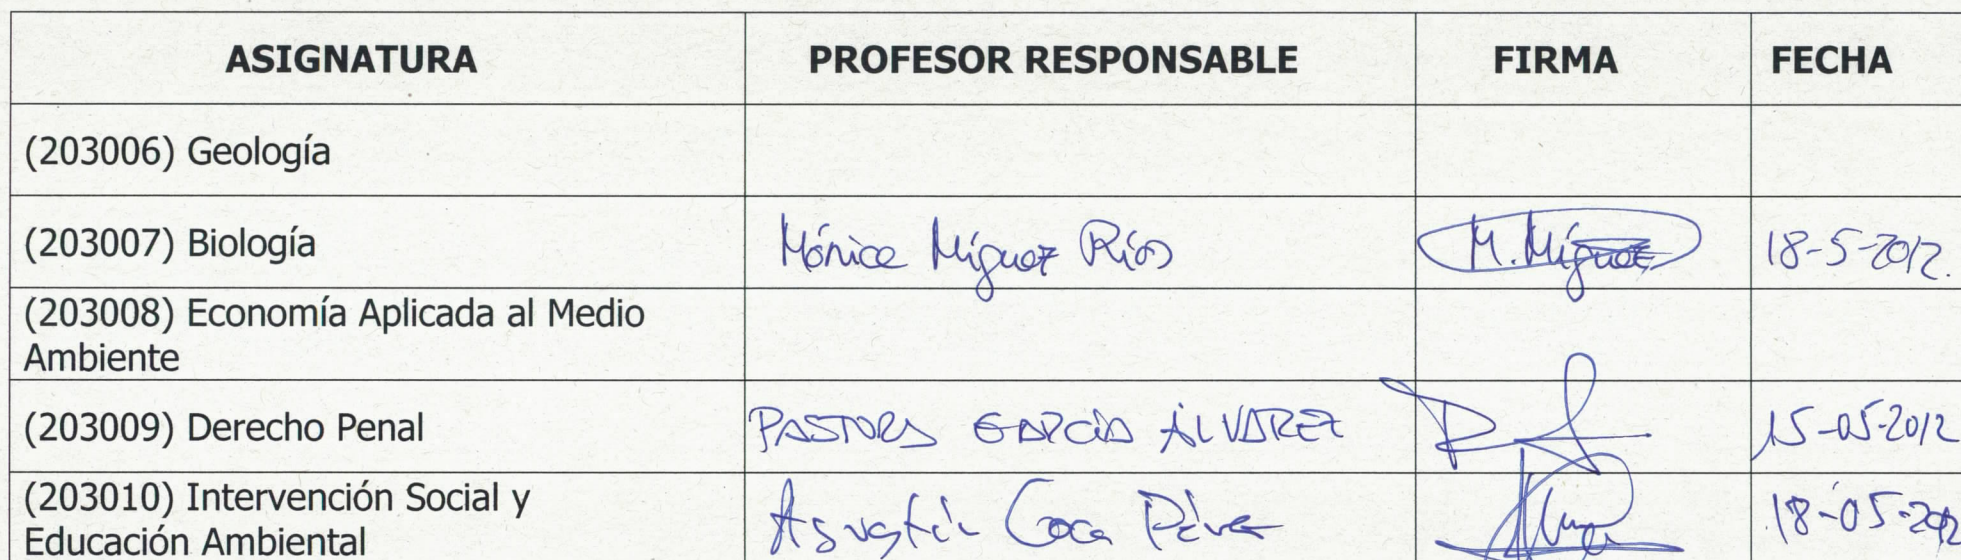 ASIGNATURA PROFESOR RESPONSABLE FIRMA FECHA
(203006) Geología
(203007) Biología Mónica Míguez Ríos M. Míguez 18-5-2012.
(203008) Economía Aplicada al Medio
Ambiente
(203009) Derecho Penal PASTORA GARCÍA ÁLVAREZ 15-05-2012
(203010) Intervención Social y
Educación Ambiental Agustín Coca Pérez 18-05-2012